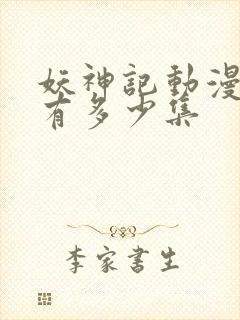 妖神記動漫
有多少集
李家書生